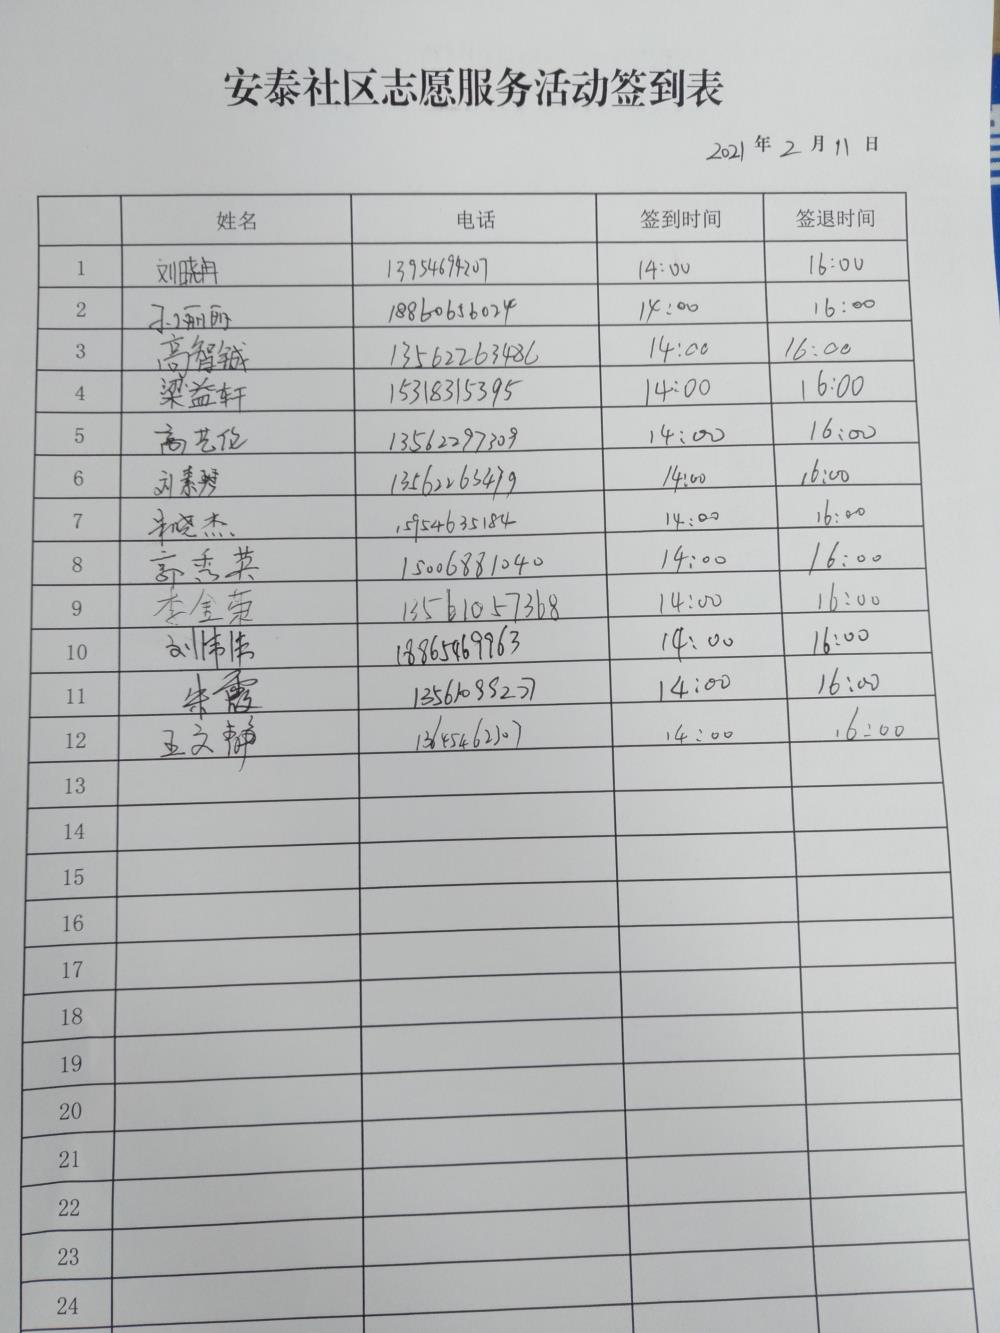 安泰社区志愿服务活动签到表
2021 年 2 月 11 日
姓名 电话 签到时间 签退时间
1 刘晓丹 13954694207 14:00 16:00
2 孙丽丽 18860656024 14:00 16:00
3 高智铖 13562263486 14:00 16:00
4 梁益轩 15318315395 14:00 16:00
5 高艺伦 13562297309 14:00 16:00
6 刘素琴 13562263479 14:00 16:00
7 晓杰 15954635184 14:00 16:00
8 郭秀英 15006881040 14:00 16:00
9 李金荣 13561057368 14:00 16:00
10 刘伟 18865469963 14:00 16:00
11 朱霞 14:00 16:00
12 王文静 14:00 16:00
13
14
15
16
17
18
19
20
21
22
23
24